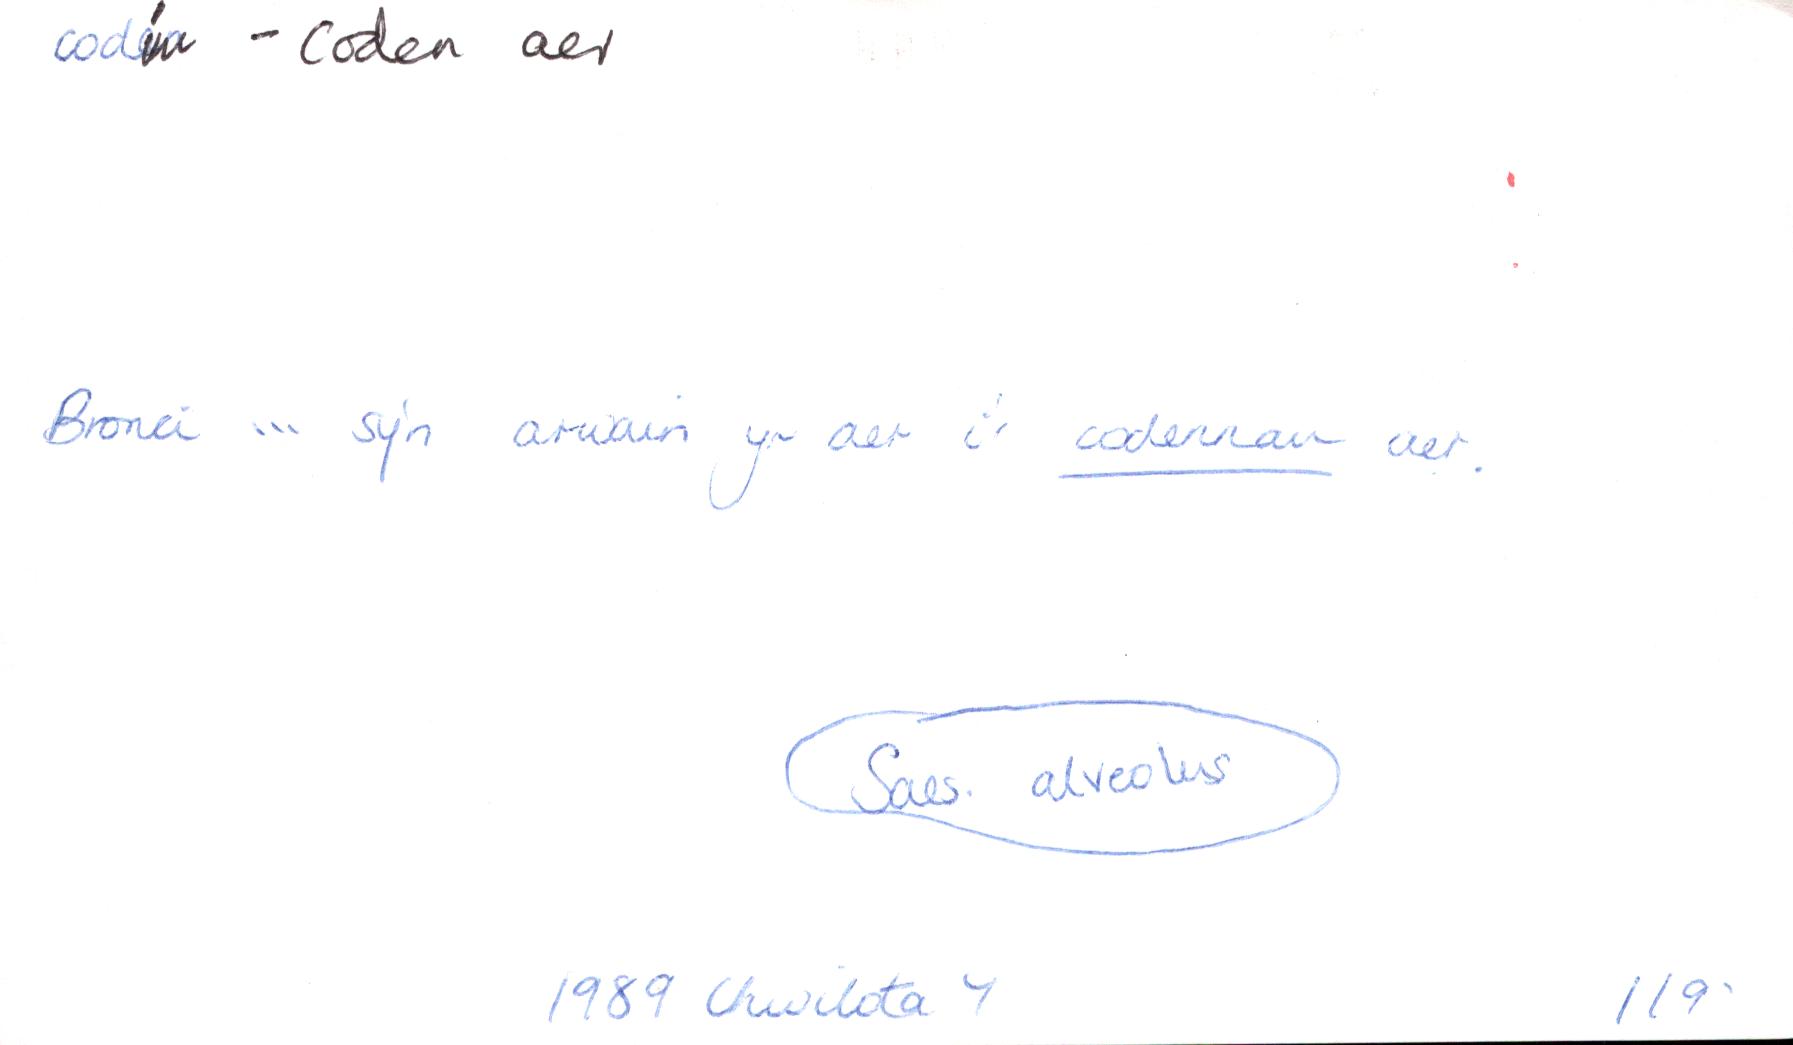 codin - Coden aer
Bronci ... sy'n arwain yr aer i'r codennau aer.
Saes. alveolus
1989 Chwilota 4
119